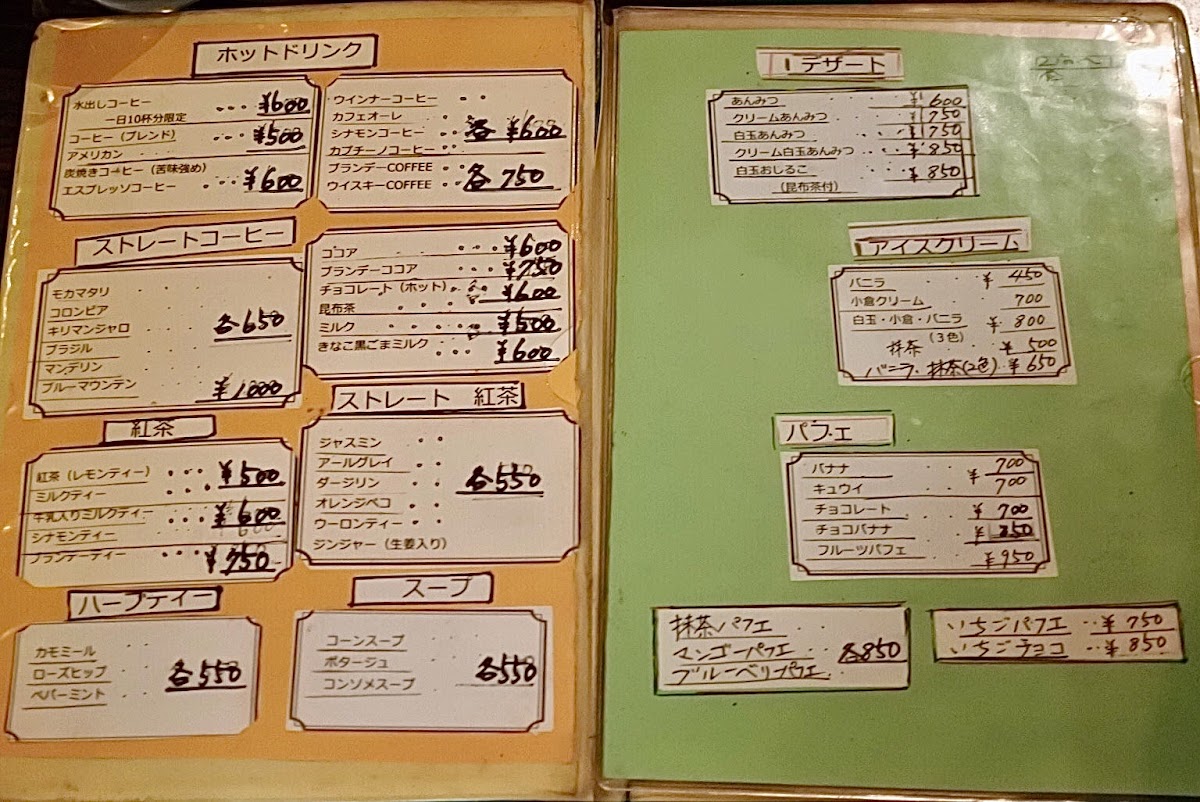 ホットドリンク
水出しコーヒー ・・・ ¥600
一日10杯分限定
コーヒー（ブレンド） ・・・ ¥500
アメリカン
炭焼きコーヒー（苦味強め）
エスプレッソコーヒー ・・・ ¥600
ウインナーコーヒー ・・
カフェオーレ
シナモンコーヒー ・・ 各 ¥600
カプチーノコーヒー ・・
ブランデーCOFFEE
ウイスキーCOFFEE ・・ 各 750
ストレートコーヒー
モカマタリ
コロンビア
キリマンジャロ ・・・ 各650
ブラジル
マンデリン
ブルーマウンテン ・・・ ¥1000
ココア ・・・ ¥600
ブランデーココア ・・・ ¥750
チョコレート（ホット） ・・・ ¥600
昆布茶
ミルク ・・・・・ ¥500
きなこ黒ごまミルク ・・・ ¥600
紅茶
紅茶（レモンティー） ・・・ ¥500
ミルクティー ・・・
牛乳入りミルクティー ・・・ ¥600
シナモンティー
ブランデーティー ・・・ ¥750
ストレート 紅茶
ジャスミン ・・
アールグレイ ・・
ダージリン ・・ 各550
オレンジペコ ・・
ウーロンティー ・・
ジンジャー（生姜入り）
ハーブティー
カモミール
ローズヒップ ・・・ 各550
ペパーミント
スープ
コーンスープ
ポタージュ ・・・ 各550
コンソメスープ
デザート
あんみつ ¥600
クリームあんみつ ¥750
白玉あんみつ ・・・ ¥750
クリーム白玉あんみつ ・・・ ¥850
白玉おしるこ ・・・ ¥850
（昆布茶付）
アイスクリーム
バニラ ・・ ¥450
小倉クリーム 700
白玉・小倉・バニラ ¥800
（3色）
抹茶 ・・ ¥500
バニラ・抹茶(2色)・¥650
パフェ
バナナ ・・ ¥700
キュウイ ・・ 700
チョコレート ・・ ¥700
チョコバナナ ・・ ¥850
フルーツパフェ ・・ ¥950
抹茶パフェ ・・
マンゴーパフェ ・・ 各850
ブルーベリパフェ
いちごパフェ ・・¥750
いちごチョコ ・・¥850